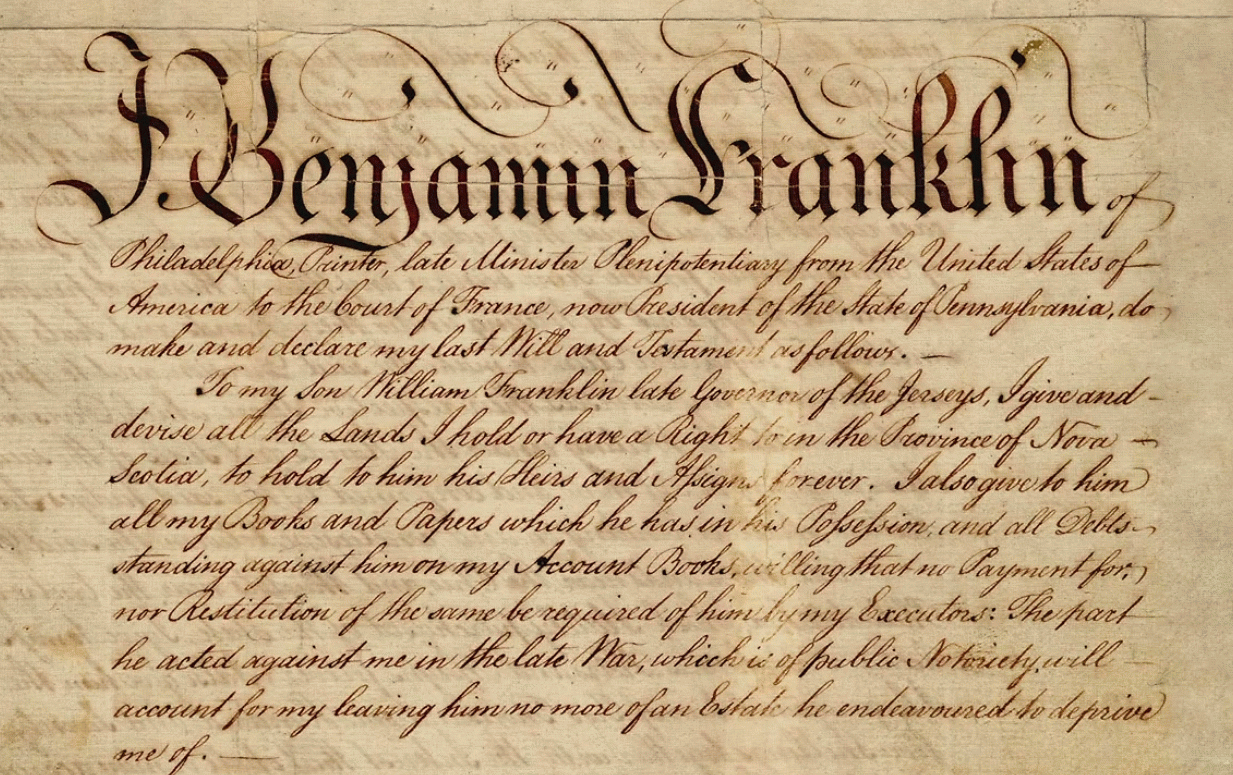 I. Benjamin Franklin of
Philadelphia, Printer, late Minister Plenipotentiary from the United States of
America to the Court of France, now President of the State of Pennsylvania, do
make and declare my last Will and Testament as follows. —
To my Son William Franklin late Governor of the Jerseys, I give and
devise all the Lands I hold or have a Right to in the Province of Nova
Scotia, to hold to him his Heirs and Aſsigns forever. I also give to him
all my Books and Papers which he has in his Poſseſsion, and all Debts
standing against him on my Account Books, willing that no Payment for,
nor Restitution of the same be required of him by my Executors: The part
he acted against me in the late War, which is of public Notoriety, will
account for my leaving him no more of an Estate he endeavoured to deprive
me of. —